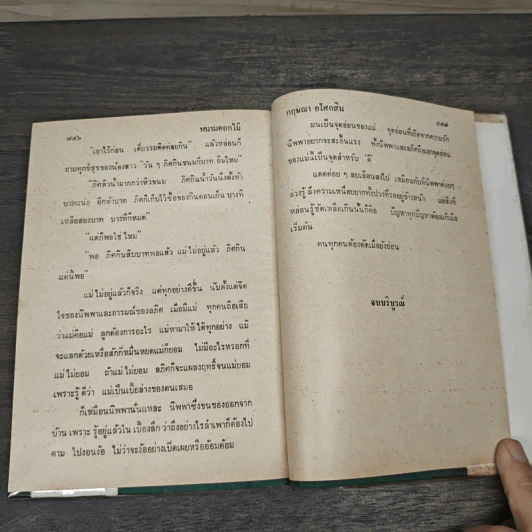 ๘๔๖ หนามดอกไม้
"เอาไว้ก่อน เดี๋ยวรถติดค่อยกิน" แล้วหล่อนก็
ถามทุกข์สุขของน้องสาว "วัน ๆ ภิศกินขนมกี่บาท อิ่มไหม"
"ภิศหิวน้ำมากกว่าหิวขนม ภิศกินน้ำวันนึงตั้งห้า
บาทแน่ะ อีกห้าบาท ภิศก็เก็บไว้ซื้อของกินตอนเย็น บางที
เหลือสองบาท บางทีก็หมด"
"แต่ก็พอใช่ไหม"
"พอ ภิศกินสิบบาทพอแล้ว แม่ไม่อยู่แล้ว ภิศกิน
แค่นี้พอ"
แม่ไม่อยู่แล้วก็จริง แต่ทุกอย่างดีขึ้น นับตั้งแต่จิต
ใจของนิพพาและอารมณ์ของลภิศ เมื่อมีแม่ ทุกคนถือเสีย
ว่าแม่คือแม่ ลูกต้องการอะไร แม่หามาให้ได้ทุกอย่าง แม้
จะแลกด้วยเหงื่อสักกี่หมื่นหยดแม่ก็ยอม ไม่มีอะไรหรอกที่
แม่ไม่ยอม ถ้าแม่ไม่ยอม ลภิศก็จะแผลงฤทธิ์จนแม่ยอม
เพราะรู้ดีว่า แม่เป็นเบี้ยล่างของตนเสมอ
ก็เหมือนนิพพานั่นแหละ นิพพาซึ่งขนของออกจาก
บ้าน เพราะรู้อยู่แล้วใน เบื้องลึก ว่าถึงอย่างไรลำเพาก็ต้องไป
ตาม ไปงอนง้อ ไม่ว่าจะง้ออย่างเปิดเผยหรืออ้อมค้อม
กฤษณา อโศกสิน ๘๔๗
มันเป็นจุดอ่อนของแม่ จุดอ่อนที่เกิดจากความรัก
นิพพาอยากจะสะอื้นแรง ทั้งนิพพาและลภิศถือเอาจุดอ่อน
ของแม่นี้เป็นจุดสำหรับ 'ตี'
แดดค่อย ๆ ลบเลือนลงไป เหมือนกับที่นิพพาค่อยๆ
ล่วงรู้ ถึงความเหนื่อยยากทั้งปวงที่รออยู่ข้างหน้า แต่สิ่งที่
หล่อนรู้ชัดเหลือเกินนั้นก็คือ ปัญหาทุกปัญหาต้องแก้เมื่อ
เริ่มต้น
คนทุกคนต้องดัดเมื่อยังอ่อน
จบบริบูรณ์